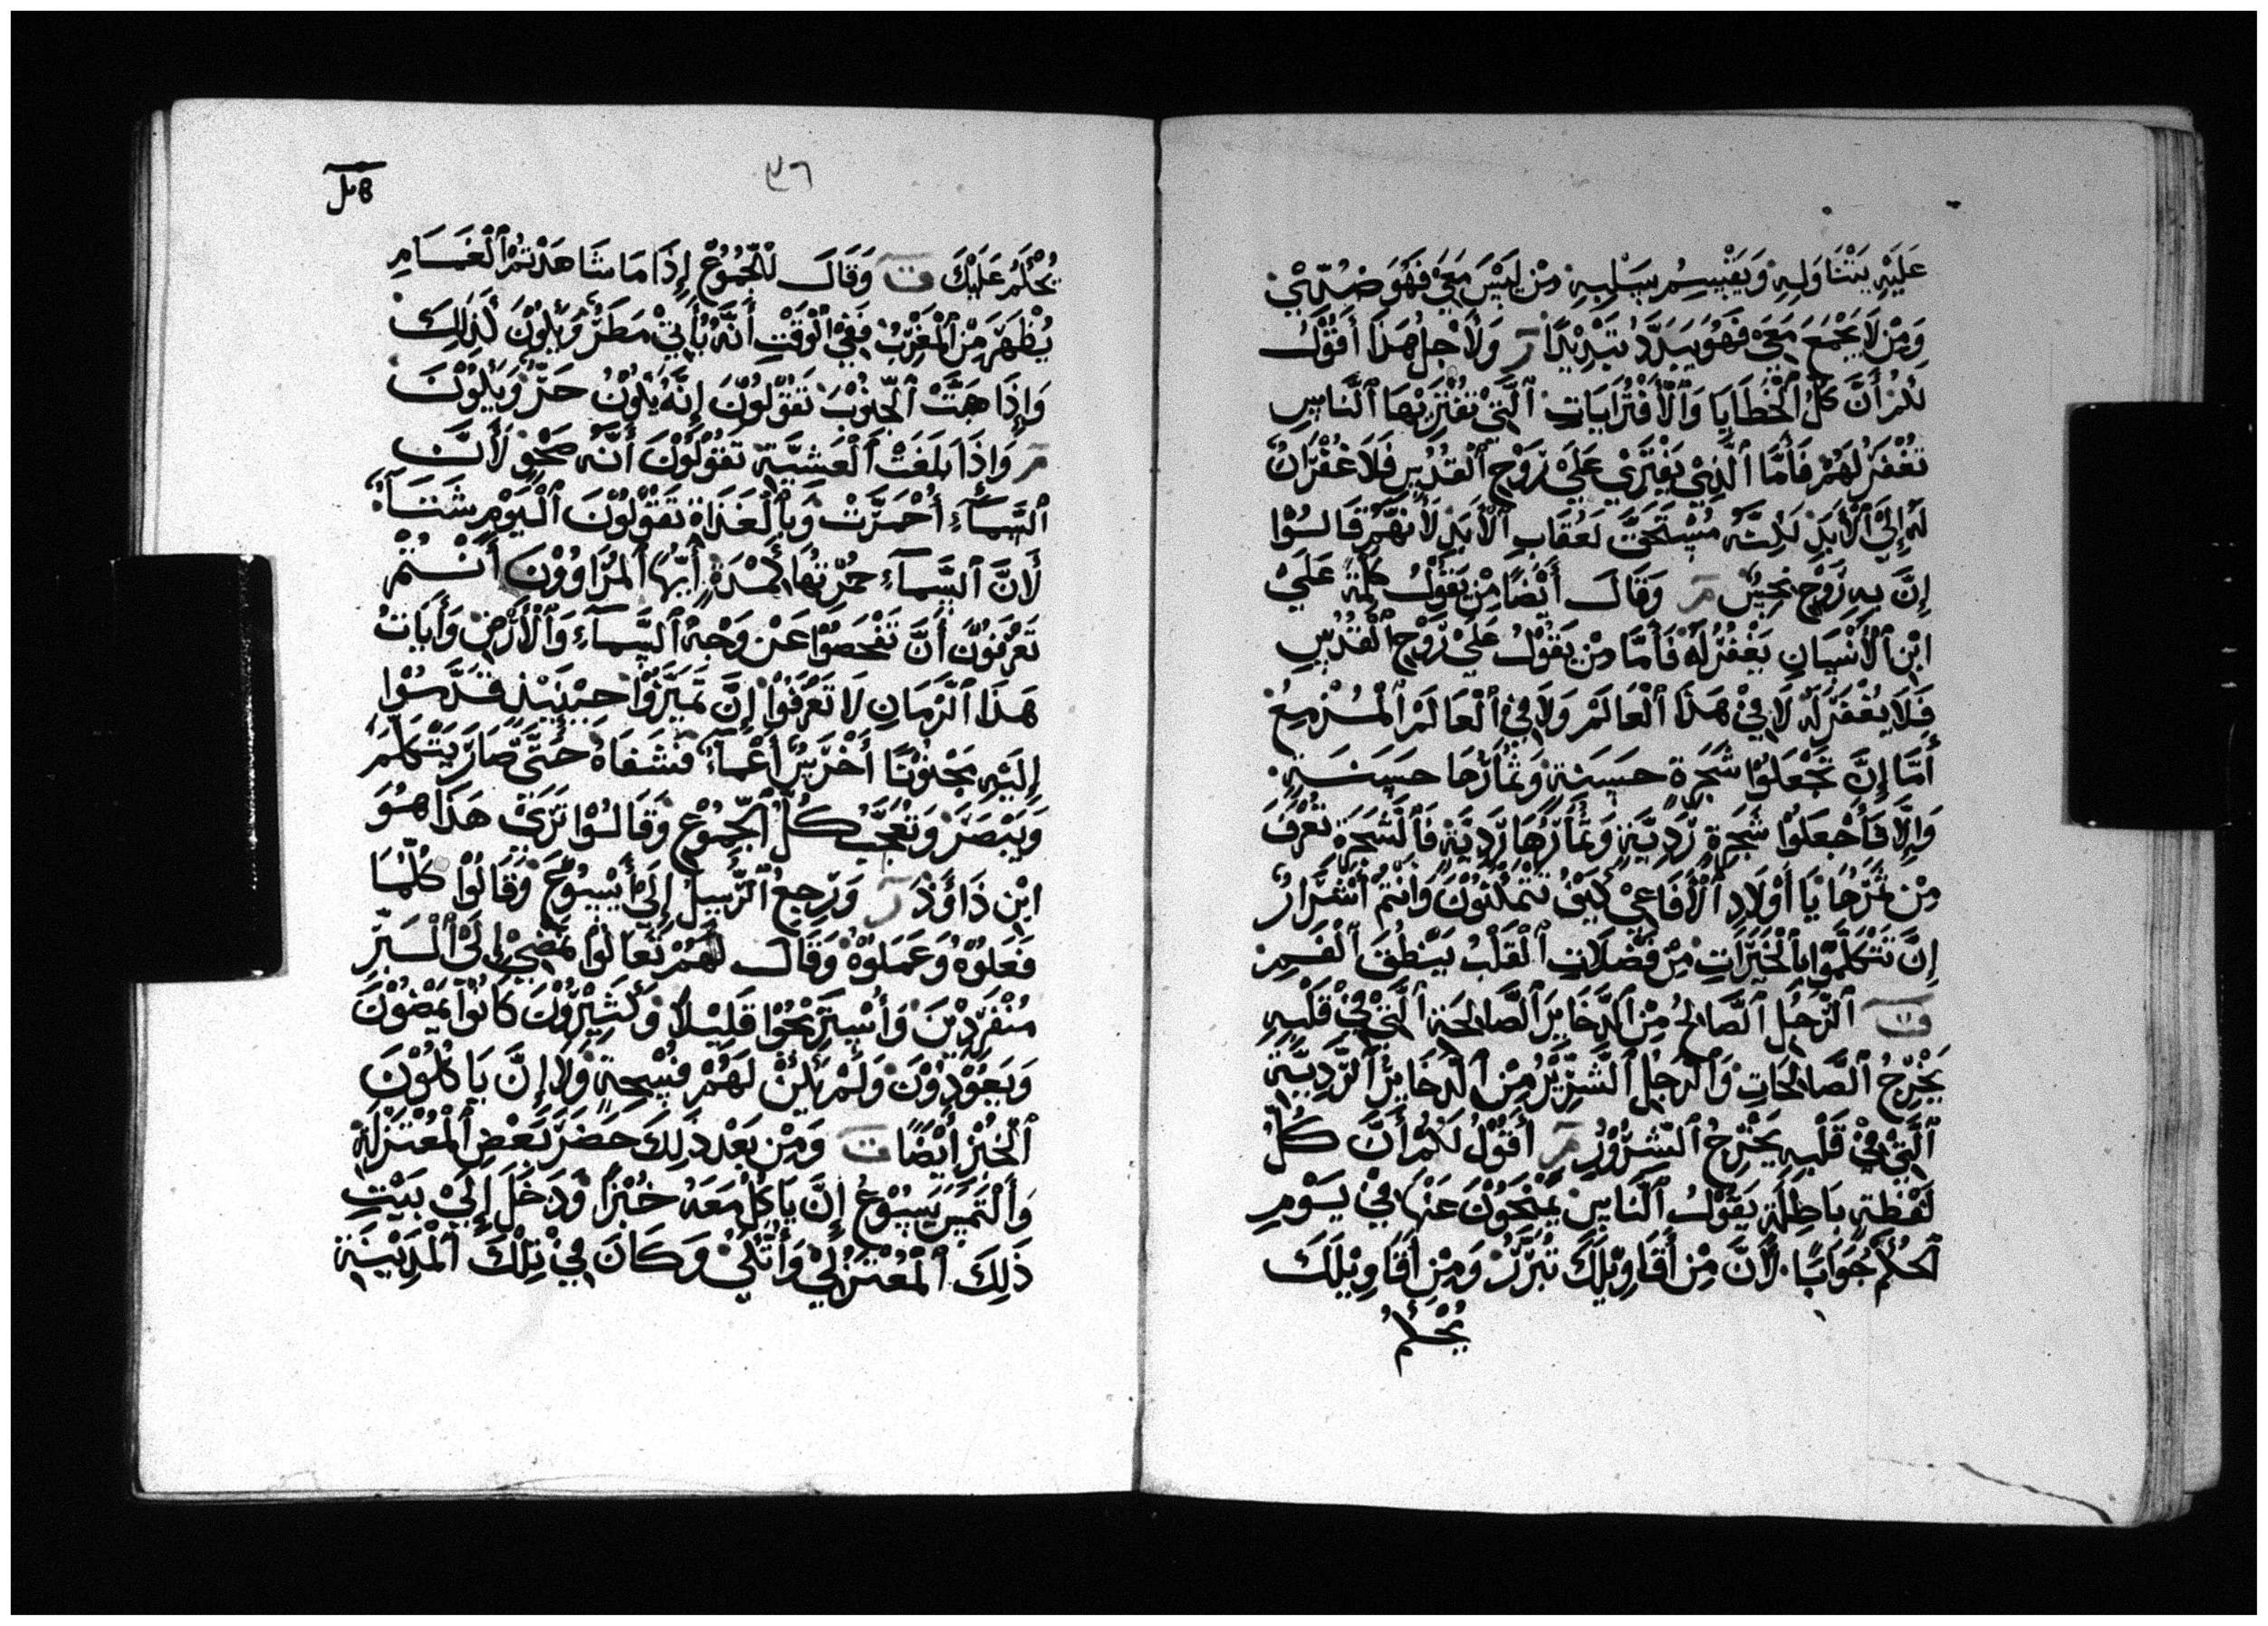 عَلَيْهِ يَتْنَاوَلِهِ وَيَقْسِمُ سَلْبِهِ مِنْ لَيْسَ مَعِيْ فَهُوَ ضُدِّيْ
وَمِنْ لَا يَجْمَعَ مَعِيْ فَهُوَ يُبَدَّدُ تَبْدِيْدًا ر وَلَأَجْلِ هَذَا أَقُوْلُ
لَكُمْ أَنَّ كُلَّ ٱلْخَطَايَا وَٱلْأَفْتَرَايَاتِ ٱلَّتِيْ تَفْتَرِيْهَا ٱلنَّاسِ
تُغْفَرُ لَهُمْ فَأَمَّا ٱلَّذِيْ يَفْتَرِيْ عَلَيْ رُوْحِ ٱلْقُدُسِ فَلَا غُفْرَانُ
لَهُ إِلَيْ ٱلْأَبَدِ لَكِنَّهُ مُسْتَحَقَّ لَعُقَابِ ٱلْأَبَدِ لَأَنَّهُمْ قَالُوْا
إِنَّ بِهِ رُوْحِ نَجِسٌ مر وَقَالَ أَيْضًا مِنْ يَقُوْلُ كَلِمَةً عَلَيْ
ابْنِ ٱلْأَنْسَانِ يَغْفُرُ لَهُ فَأَمَّا مِنْ يَقُوْلُ عَلَيْ رُوْحِ ٱلْقُدُسِ
فَلَا يُغْفَرُ لَهُ لَا فِيْ هَذَا ٱلْعَالَمْ وَلَا فِيْ ٱلْعَالَمْ ٱلْمُزْمِعْ
أَمَّا إِنَّ تَجْعَلُوْا شَجَرَةِ حَسَنَةِ وَثَمَارُهَا حَسَنَةِ
وَإِلَّا فَأَجْعَلُوْا شَجَرَةِ رَدِيَّةِ وَثَمَارُهَا رَدِيَّةِ فَٱلْشَجَرَةِ تُعْرَفُ
مِنْ ثَمَرُهَا يَا أَوْلَادِ ٱلْأَفَاعِيْ كَيْفَ تَتْمَكْنُوْنَ وَانْتُمْ أَشْرَارُ
إِنَّ تَتْكَلَّمُوْا بِٱلْخَيْرَاتِ مِنْ فَضْلَاتِ ٱلْقَلْبُ يَنْطُقُ ٱلْفَمِ
ف ٱلْرَجُلِ ٱلصَّالِحُ مِنْ ٱلذَّخَايِرَ ٱلصَّالِحَةِ ٱلَّتِيْ فِيْ قَلْبِهِ
يَخْرِجُ ٱلصَّالِحَاتِ وَٱلْرَجُلُ ٱلشَّرِيْرُ مِنْ ٱلذَخَايِرْ ٱلرَّدِيَّةِ
ٱلَّتِيْ فِيْ قَلْبِهِ يَخْرِجُ ٱلشُّرُوْرُ مر أَقُوْلُ لَكُمْ أَنَّ كُلُّ
لَفْظَةِ بَاطِلَةِ يَقُوْلُ ٱلنَّاسِ يَمْنَحُوْنَ عَنْهَا فِيْ يَوْمِ
ٱلحُكْمِ جُوَابًا لَأَنَّ مِنْ أَقَاوِيْلَكَ تُبَرَّرُ وَمِنْ أَقَاوِيْلَكَ
يُحْكَمُ
٩٦
يُحْكَمُ عَلَيْكَ ف وَقَالَ لِلْجُمُوْعِ إِذَا مَا شَاهَدْتُمْ ٱلْغَمَامِ
يُظْهَرَ مِنْ ٱلْمَغْرِبْ فَفِيْ ٱلْوَقْتِ أَنَّهُ يُأْتِيْ مَطَرٌ وَيْكُوْنَ كَذَلِكَ
وَإِذَا هَبَّتْ ٱلْجِنُوْبَ تَقُوْلُوْنَ إِنَّهُ يَكُوْنُ حَرٌّ وَيَكُوْنَ
مر وَإِذَا بَلَغَتْ ٱلْعَشِيَّةِ تَقُوْلُوْنَ أَنَّهُ صَحْوِ لَأَنَّ
ٱلسَّمَآءِ أُحْمَرَّتْ وَبِٱلْغَدَاةِ تَقُوْلُوْنَ ٱلْيَوْمِ شَتَآءُ
لَأَنَّ ٱلسَّمَآءِ حُمْرَتُهَا كَمْدَةٍ أَيُّهَا ٱلمُرَاوُوْنَ أَنْتُمْ
تَعْرُفُوْنَ أَنَّ تَفْحَصُوْا عَنْ وَجْهُ ٱلسَّمَآءِ وَٱلْأَرْضِ وَأَيَاتُ
هَذَا ٱلزَّمَانِ لَا تَعْرَفُوْا إِنَّ تَمَيَّزُوْا حِيْنَيْذِ قَدَّمُوْا
إِلَيْهِ مَجْنُوْنًا أَخْرَسُ أَعْمَآءُ فَشَفَاهُ حَتَّي صَارَ يَتْكَلَّمُ
وَيَبْصَرَ وَتَعَجَّبَ كُلُّ ٱلْجُمُوْعِ وَقَالُوْا تَرَيْ هَذَا هُوَ
ابْنِ دَاوُوْدْ ر وَرِجِعُ ٱلرُّسِلُ إِلَيْ أَيْسُوْعَ وَقَالُوْا كُلَّمَا
فَعَلُوْهُ وَعَمَلُوْهُ وَقَالَ لَهُمْ تَعَالَوْا نَمْضِيْ إِلَيْ ٱلْبَرِّ
مُنْفَرِدْيِنَ وَأَسْتَرِيْحُوْا قَلِيْلًا وَكَثِيْرُوْنَ كَانُوْا يَمْضُوْنَ
وَيَعُوْدُوْنَ وَلَمْ يَكُنْ لَهُمْ فُسْحَةٍ وَلَا إِنَّ يَاكُلُوْنَ
ٱلْخُبْزِ أَيْضًا ف وَمِنْ بَعْدِ ذَلِكَ حَضَرَ بَعْضِ ٱلْمُعْتَزَلَةِ
وَٱلْتَمِسَ يَسُوْعُ إِنَّ يَاكُلْ مَعَهُ خُبْزًا وَدَخَلَ إِلَيْ بَيْتِ
ذَلِكَ ٱلْمُعْتَزِلِيْ وَأَتَّكَيْ وَكَانَ فِيْ تِلْكَ ٱلْمَدِيْنَةِ